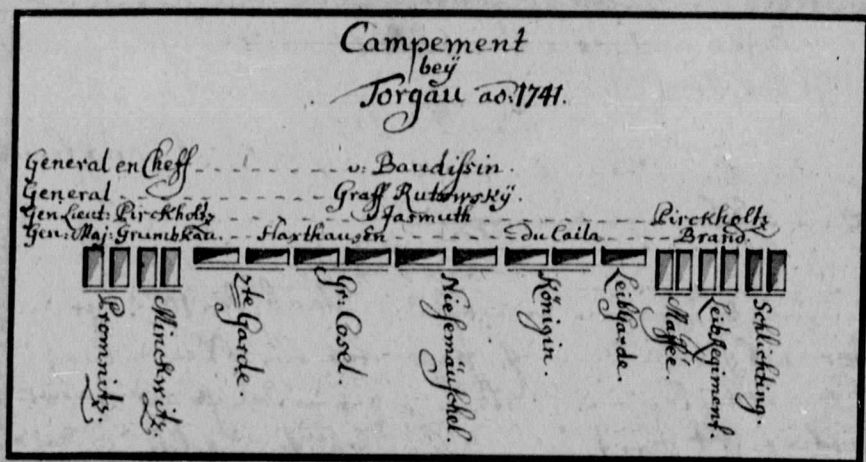 Campement
beÿ
Torgau ao: 1741.
General en Cheff - - - v: Baudißin.
General - - - Graff Rutowskÿ.
Gen: Lieut: Pirckholtz - - - Jasmuth - - - Pirckholtz
Gen: Maj: Grumbkau. - - Haxthausen - - - du Caila - - - Brand.
Promnitz.
Minckwitz.
2te Garde.
Gr: Cosel.
Niesemäuschel.
Königin.
LeibGarde.
Maj:
LeibRegiment.
Schlichting.